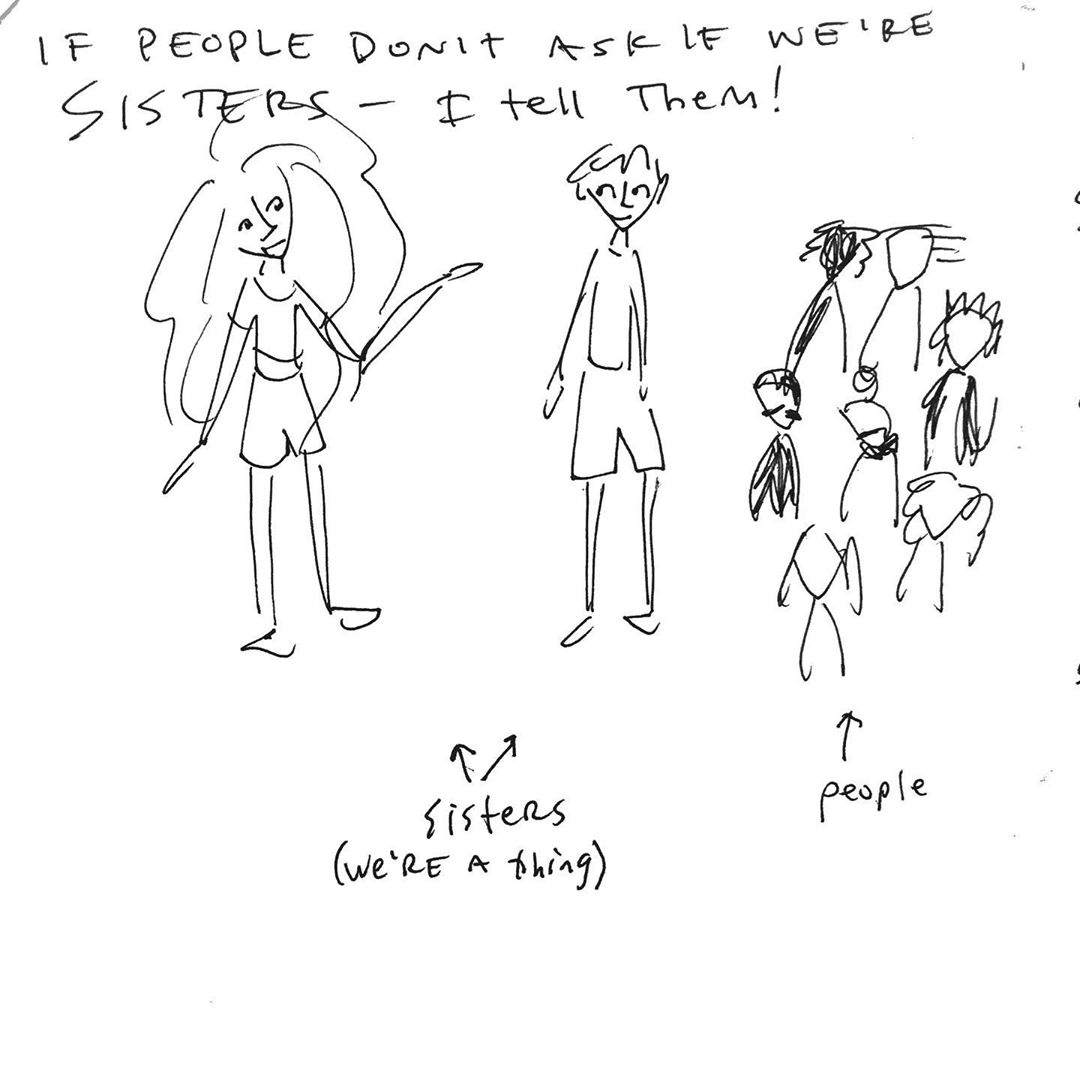 IF PEOPLE DON'T ASK IF WE'RE
SISTERS – I tell Them!
sisters
(we'RE A thing)
people